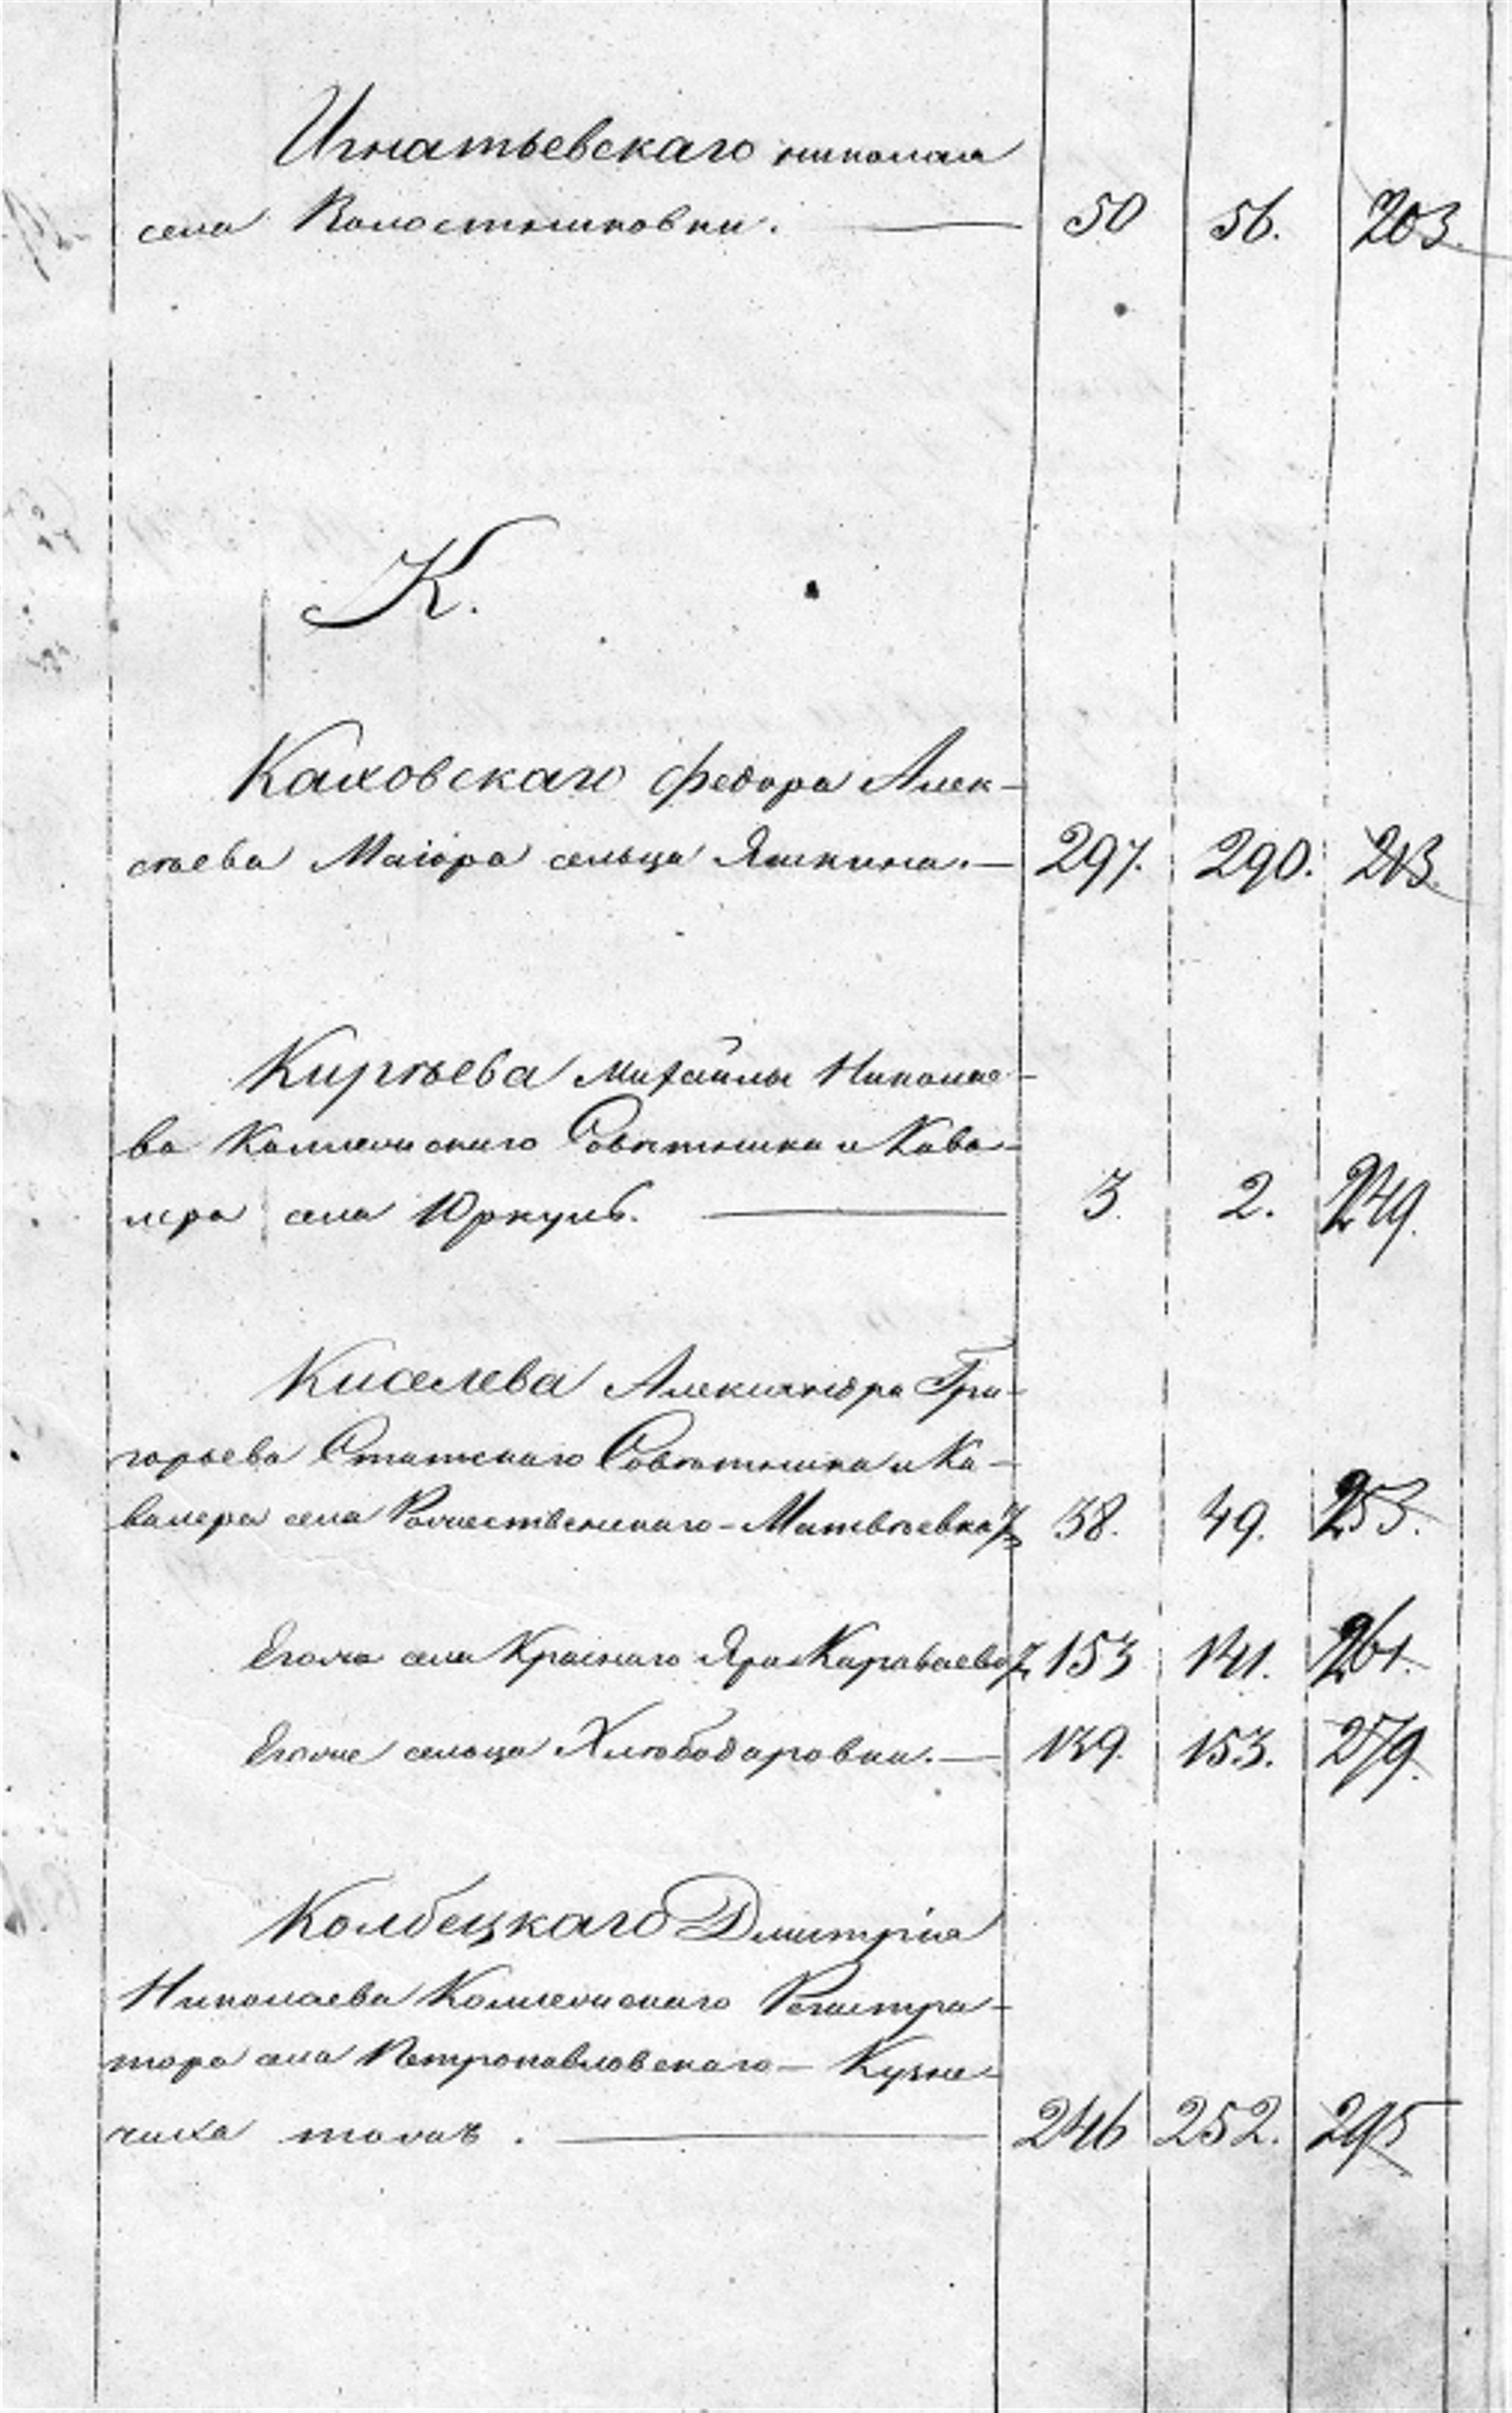 Игнатьевскаго николая
села Волостниковки. — 50 56. 203.
К.
Каховскаго федора Алек-
сѣева Маіора сельца Яшкина. — 297. 290. 213.
Кирѣева Михайлы Николае-
ва Коллежскаго Совѣтника и Кава-
лера села Юркуль. — 3. 2. 249.
Киселева Александра Гри-
горьева Статскаго Совѣтника и Ка-
валера села Рожественскаго-Матвѣевка 38. 49. 253.
Егоже села Краснаго Яра Караваево 153 141. 261.
Егоже сельца Хлѣбодаровки. — 139. 153. 279.
Колбецкаго Дмитрія
Николаева Коллежскаго Регистра-
тора села Петропавловскаго- Кузне-
чиха тожъ. — 246 252. 295